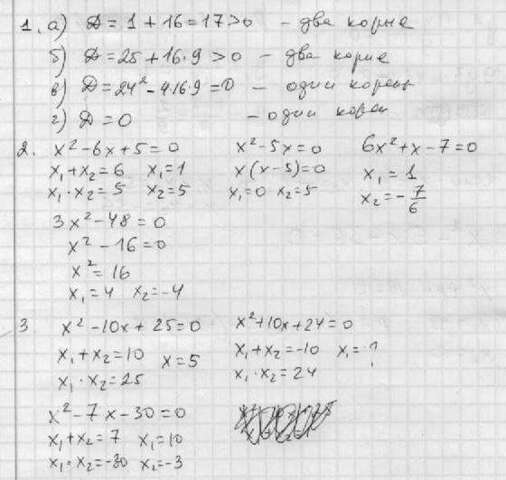 1. а) D = 1 + 16 = 17 > 0 – два корня
б) D = 25 + 16·9 > 0 – два корня
в) D = 24² – 4·16·9 = 0 – один корень
г) D = 0 – один корен
2. x² – 6x + 5 = 0 x² – 5x = 0 6x² + x – 7 = 0
x₁ + x₂ = 6 x₁ = 1 x(x – 5) = 0 x₁ = 1
x₁ · x₂ = 5 x₂ = 5 x₁ = 0 x₂ = 5 x₂ = – 7/6
3x² – 48 = 0
x² – 16 = 0
x² = 16
x₁ = 4 x₂ = –4
3 x² – 10x + 25 = 0 x² + 10x + 24 = 0
x₁ + x₂ = 10 x = 5 x₁ + x₂ = –10 x₁ = ?
x₁ · x₂ = 25 x₁ · x₂ = 24
x² – 7x – 30 = 0
x₁ + x₂ = 7 x₁ = 10
x₁ · x₂ = –30 x₂ = –3